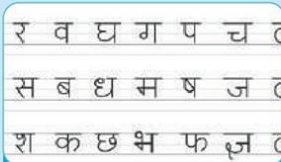 र व घ ग प च
स ब ध म ष ज
श क छ भ फ ज्ञ